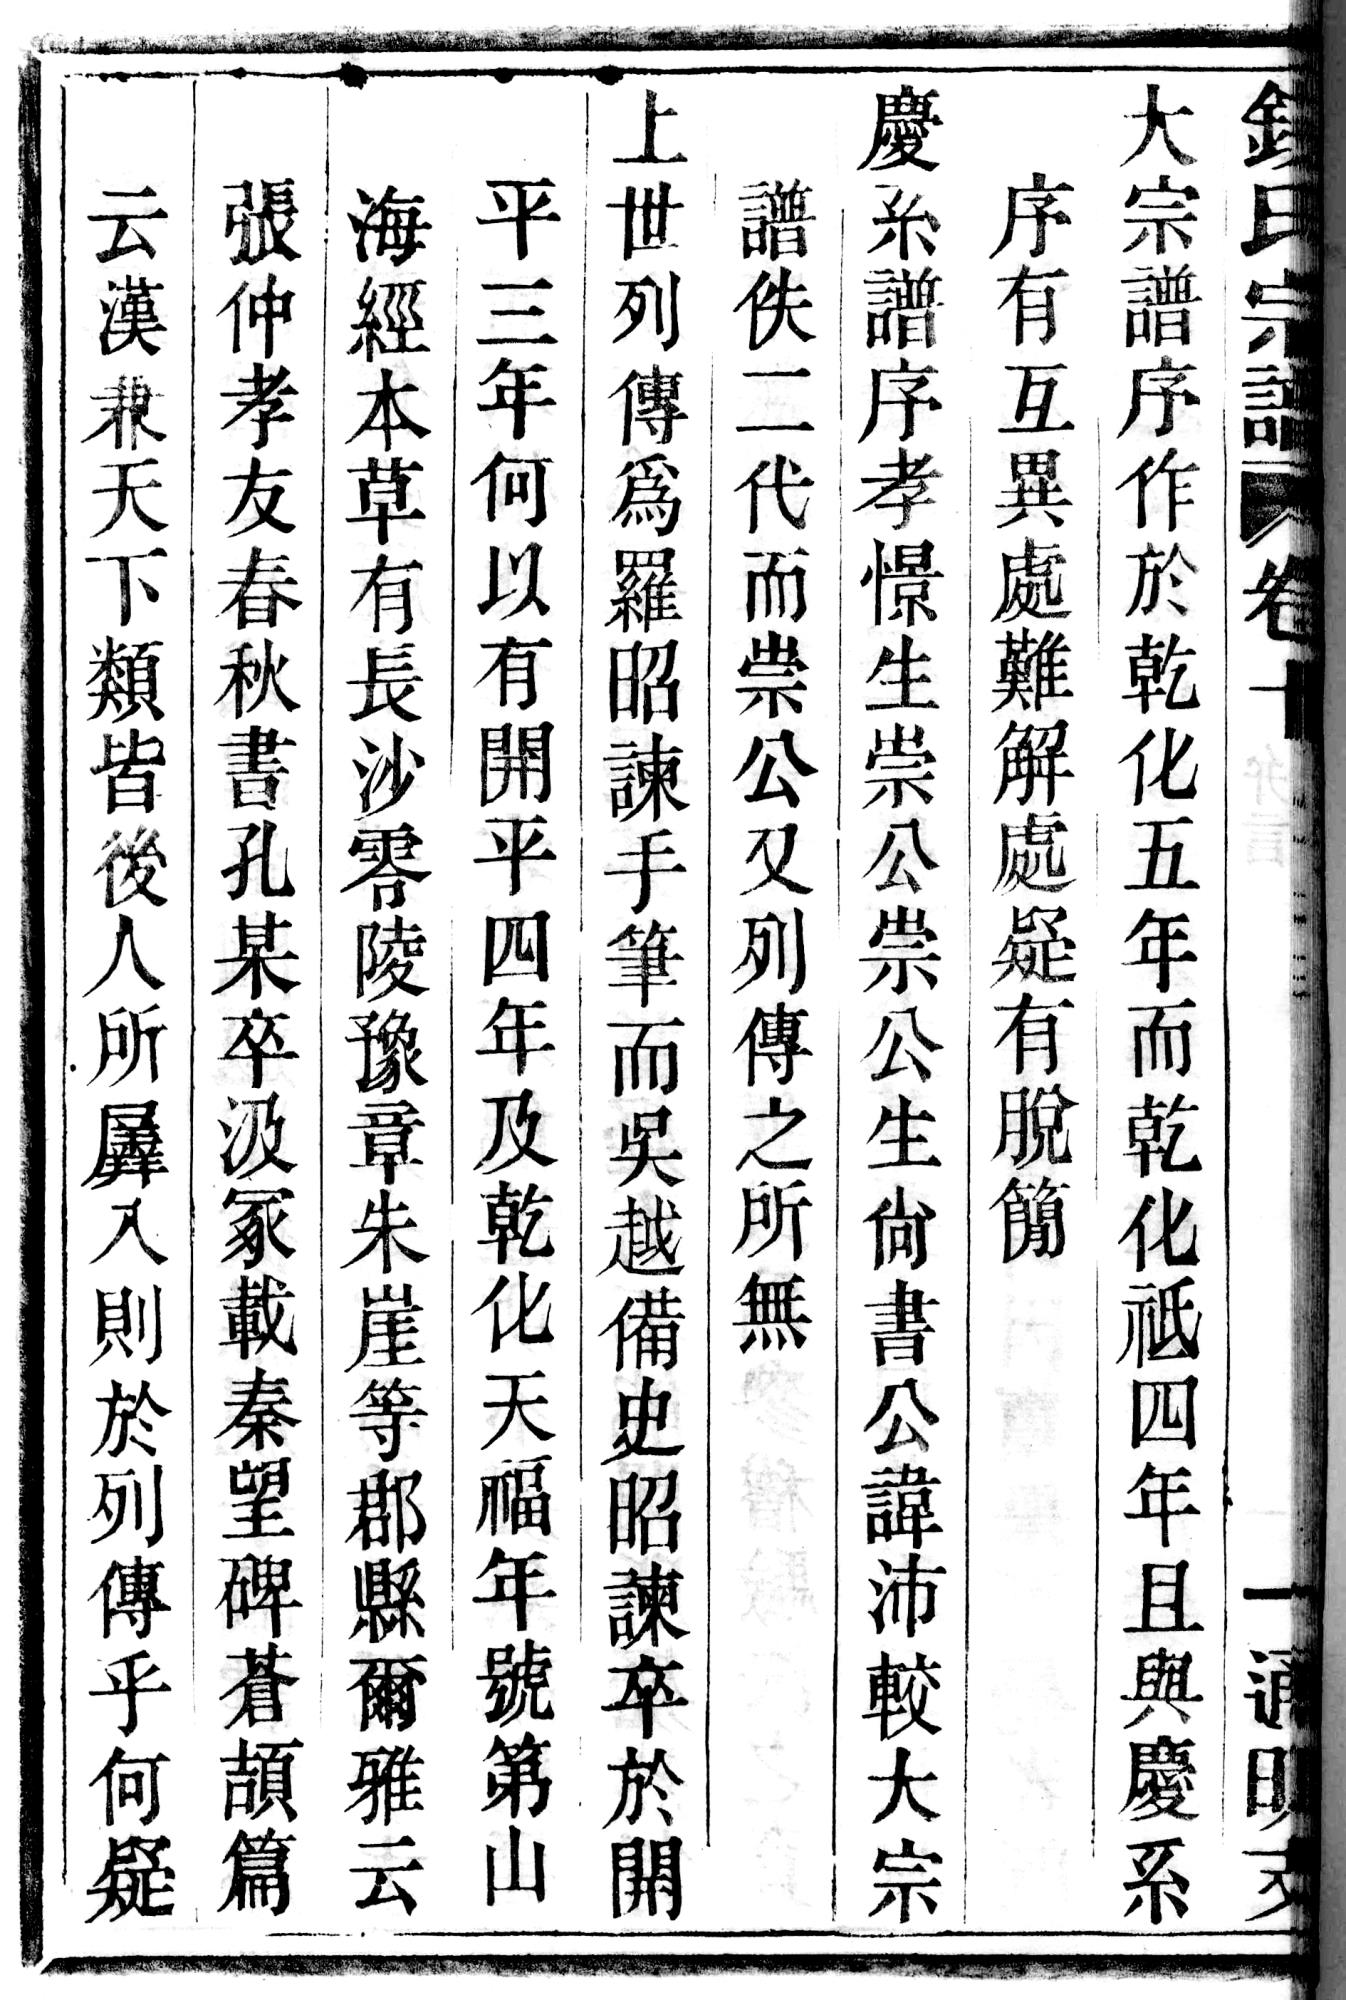 錢氏宗譜 卷十 一 通明
大宗譜序作於乾化五年而乾化祗四年且與慶系
序有互異處難解處疑有脫簡
慶系譜序孝憬生崇公崇公生尙書公諱沛較大宗
譜佚二代而崇公又列傳之所無
上世列傳爲羅昭諫手筆而吳越備史昭諫卒於開
平三年何以有開平四年及乾化天福年號第山
海經本草有長沙零陵豫章朱崖等郡縣爾雅云
張仲孝友春秋書孔某卒汲冢載秦望碑蒼頡篇
云漢兼天下類皆後人所羼入則於列傳乎何疑